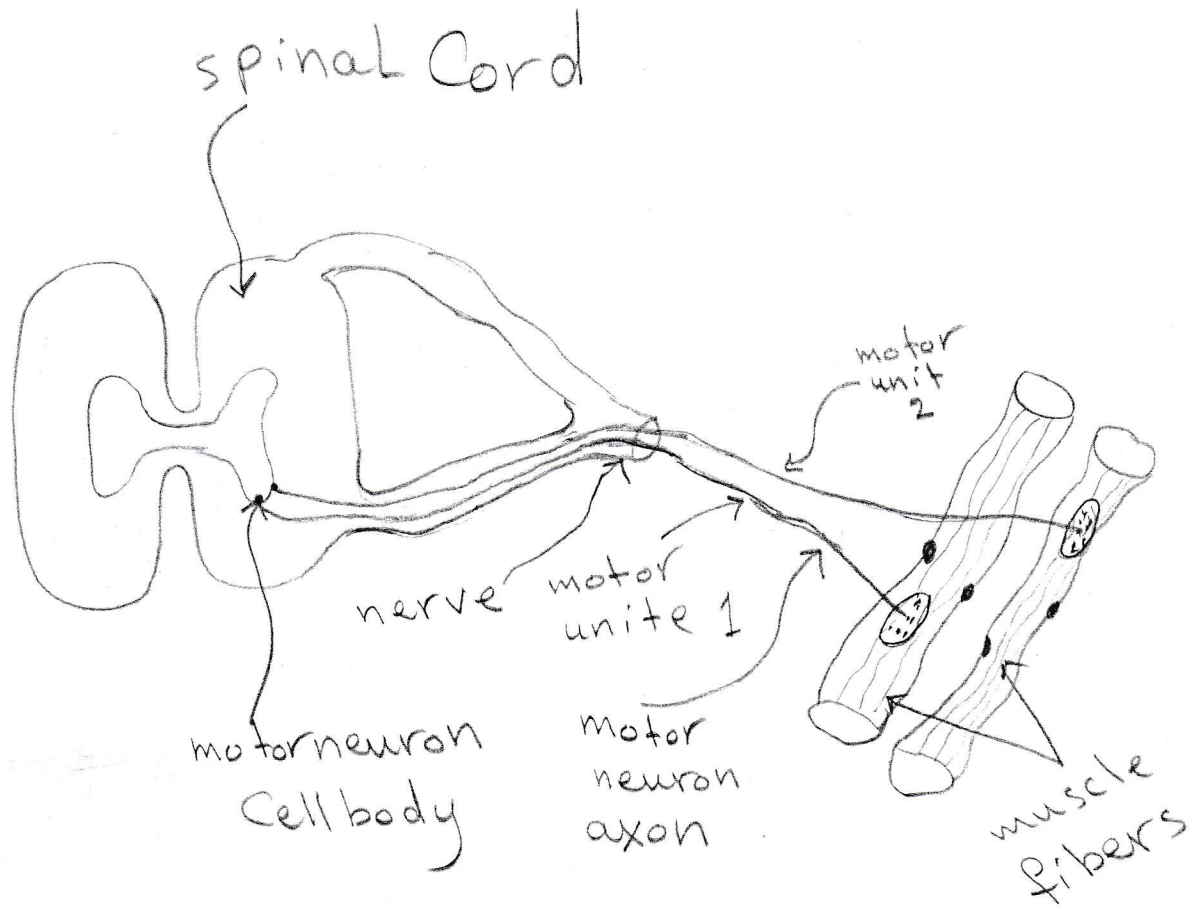 spinal Cord
motor
unit
2
nerve
motor
unite 1
motorneuron
Cell body
motor
neuron
axon
muscle
fibers